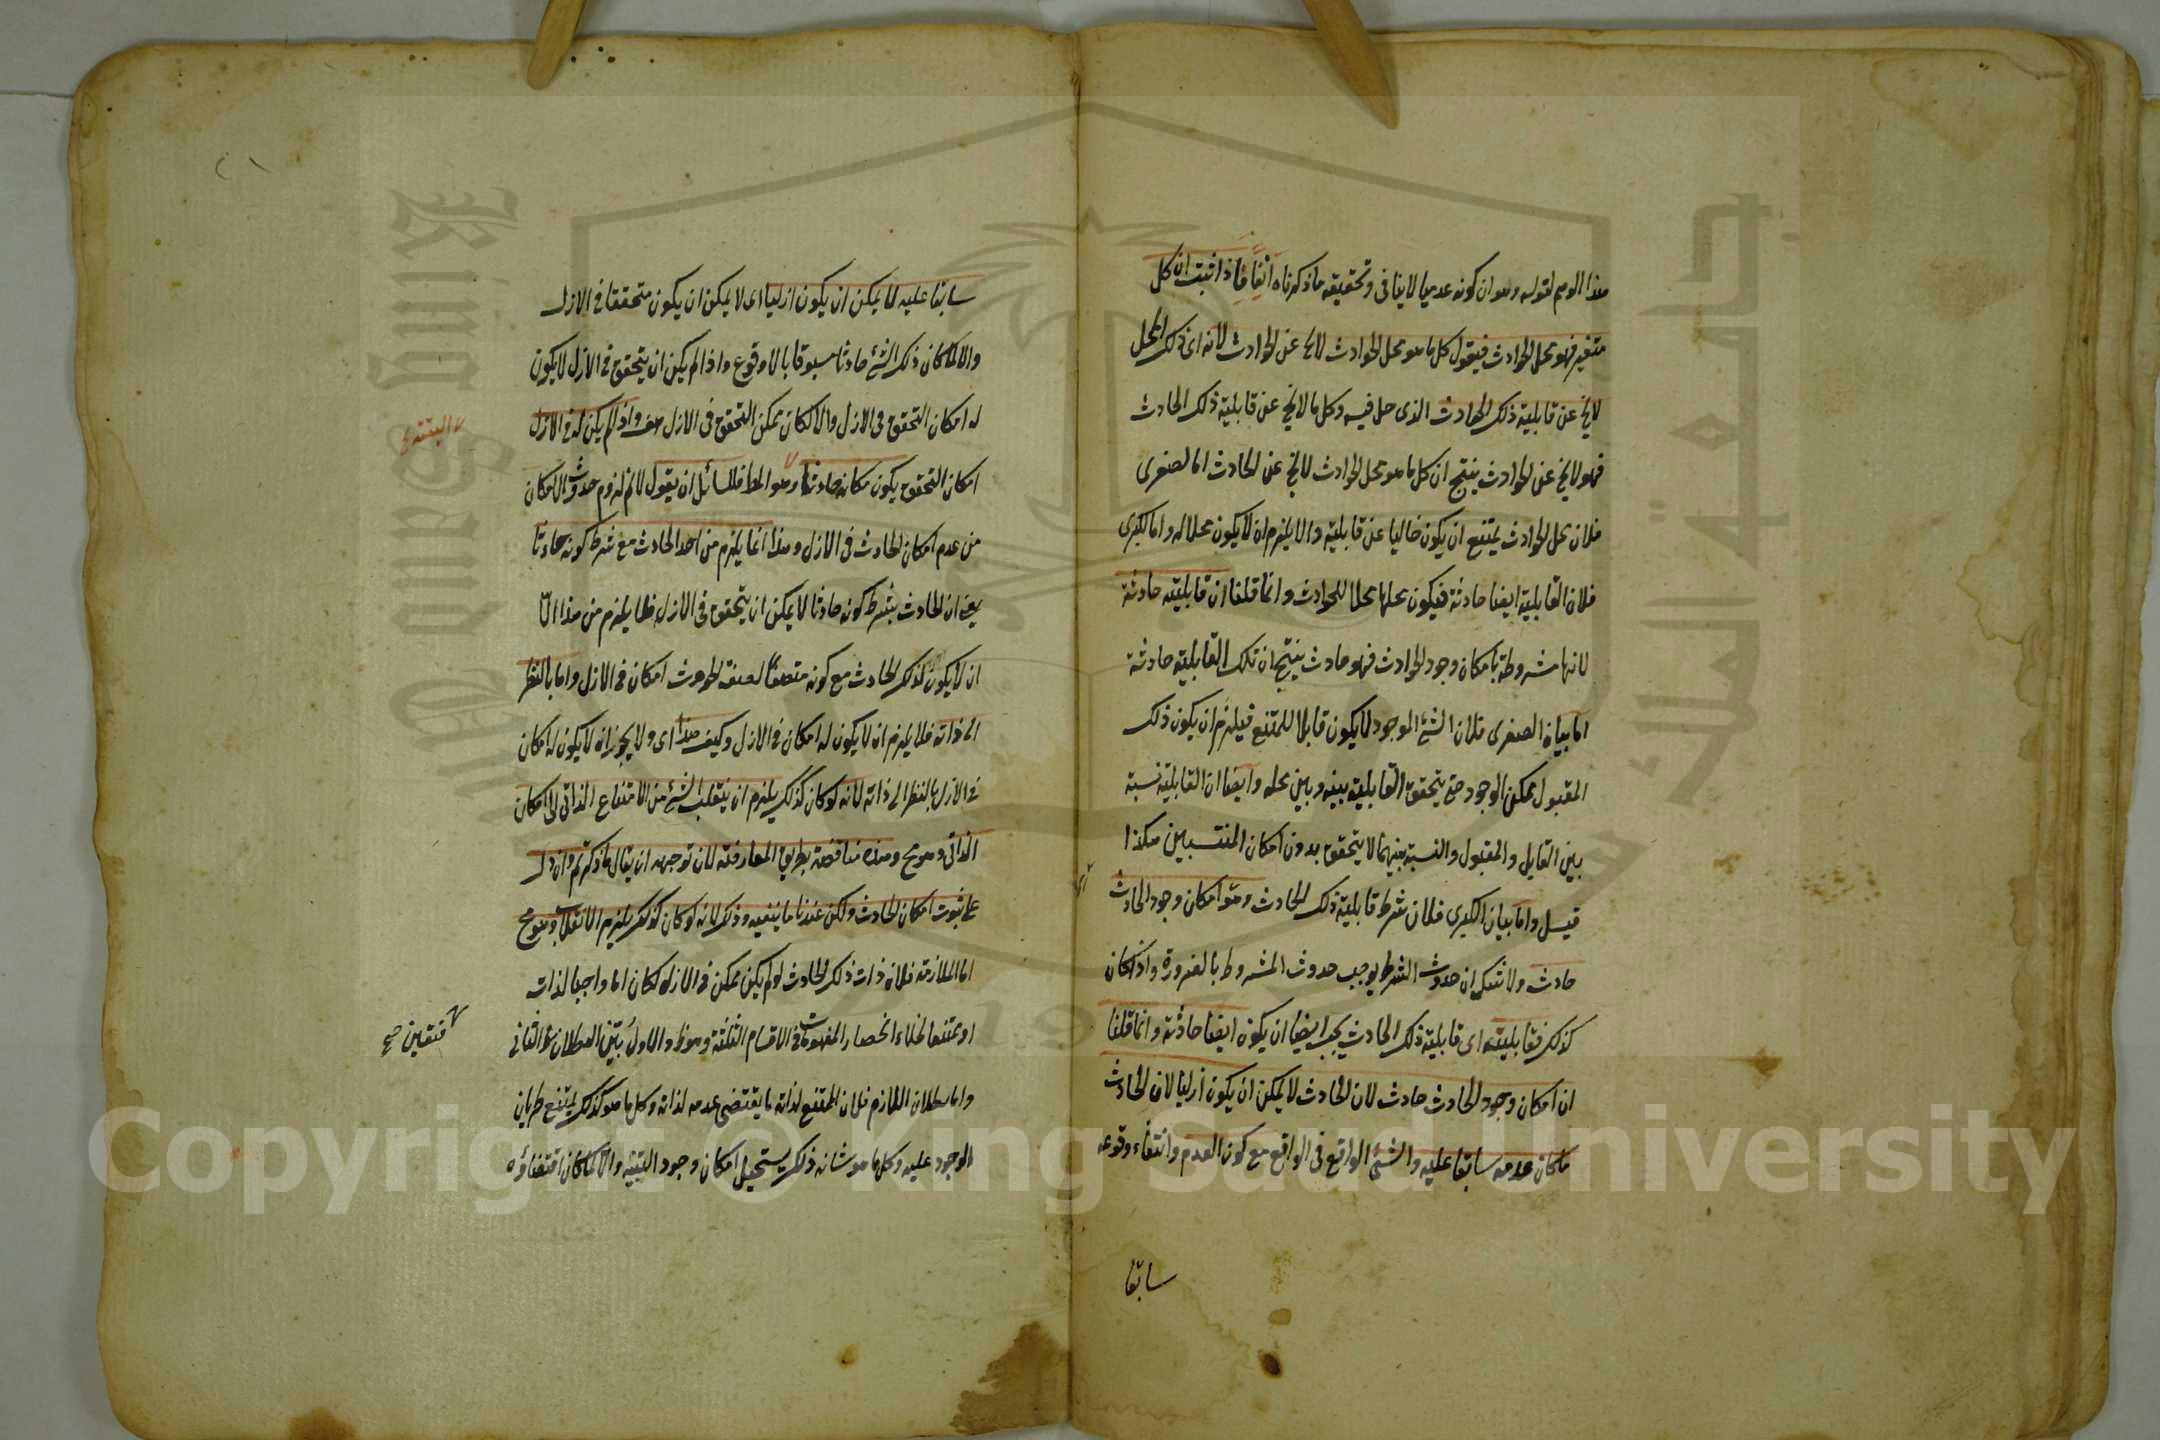 هذا الوهم لقوله وهو ان كونه عدميا لا ينافى وتحقيقه ما ذكرناه انفا فاذا ثبت ان كل
متغير فهو محل الحوادث فيقول كل ما هو محل الحوادث لا يخ عن الحوادث لانه اى ذلك المحل
لا يخ عن قابلية ذلك الحادث الذى حل فيه وكل ما لا يخ عن قابلية ذلك الحادث
فهو لا يخ عن الحوادث ينتج ان كل ما هو محل الحوادث لا يخ عن الحادث اما الصغرى
فلان محل الحوادث يمتنع ان يكون خاليا عن قابليته والا يلزم ان لا يكون محلا له واما الكبرى
فلان القابلية ايضا حادثة فيكون محلها محلا للحوادث وانما قلنا ان قابليته حادثة
لانها مشروطة بامكان وجود الحوادث فهو حادث ينتج ان تلك القابلية حادثة
اما بيان الصغرى فلان الشئ الموجود لا يكون قابلا للممتنع فيلزم ان يكون ذلك
المقبول ممكن الوجود حتى يتحقق القابلية بينه وبين محله وايضا ان القابلية نسبة
بين القابل والمقبول والنسبة بينهما لا يتحقق بدون امكان المنتسبين هكذا
قيل واما بيان الكبرى فلان شرط قابلية ذلك الحادث وهو امكان وجود الحادث
حادث ولا شك ان حدوث الشرط يوجب حدوث المشروط بالضرورة واذا كان
كذلك فقابليته اى قابلية ذلك الحادث يجب ايضا ان يكون ايضا حادثة وانما قلنا
ان امكان وجود الحادث حادث لان الحادث لا يمكن ان يكون أزليا لان الحادث
ما كان عدمه سابقا عليه والشئ الواقع فى الواقع مع كون العدم وانتفاء وقوعه
سابقا
سابقا عليه لا يمكن ان يكون ازليا اى لا يمكن ان يكون متحققا فى الازل
والا لما كان ذلك الشئ حادثا مسبوقا بالا وقوع واذا لم يكن ان يتحقق فى الازل لا يكون
له امكان التحقق فى الازل والا لكان ممكن التحقق فى الازل هف واذا لم يكن له فى الازل
البتة
امكان التحقق يكون مكانه حادثا وهو المط فللسائل ان يقول لا نم لزوم حدوث الامكان
من عدم امكان الحادث فى الازل وهذا انما يلزم من اخذ الحادث مع شرط كونه حادثا
يعنى ان الحادث بشرط كونه حادثا لا يمكن ان يتحقق فى الازل فلا يلزم من هذا الا
ان لا يكون لذلك الحادث مع كونه متصفا لصفة الحدوث امكان فى الازل واما بالنظر
الى ذاته فلا يلزم ان لا يكون له امكان فى الازل وكيف هذا اى ولا يجوز ان لا يكون له امكان
فى الازل بالنظر الى ذاته لانه لو كان كذلك يلزم ان ينقلب الشئ من الامتناع الذاتى الى الامكان
الذاتى وهو مح وهذه مناقضة بطريق المعارضة لان توجيهه ان يقال ما ذكرتم وان دل
على ثبوت امكان الحادث ولكن عندنا ما ينفيه وذلك لانه لو كان كذلك يلزم الانقلاب وهو مح
اما الملازمة فلان ذات ذلك الحادث لو لم يكن ممكن فى الازل لكان اما واجبا لذاته
او ممتنعا لذاته انحصار المفهومات فى الاقسام الثلثة وهو ظ والاول بين البطلان الثانى
فتعين صح
واما بطلان اللازم فلان الممتنع لذاته ما يقتضى عدمه لذاته وكل ما هو كذلك يمتنع طريان
الوجود عليه وكل ما هو شانه ذلك يستحيل امكان وجود البتة والا لما كان اقتضاؤه